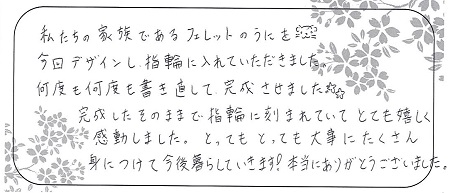 私たちの家族であるフェレットのうにを
今回デザインし、指輪に入れていただきました。
何度も何度も書き直して完成させました☆☆
完成したそのままで指輪に刻まれていてとても嬉しく
感動しました。とってもとっても大事にたくさん
身につけて今後暮らしていきます!本当にありがとうございました。